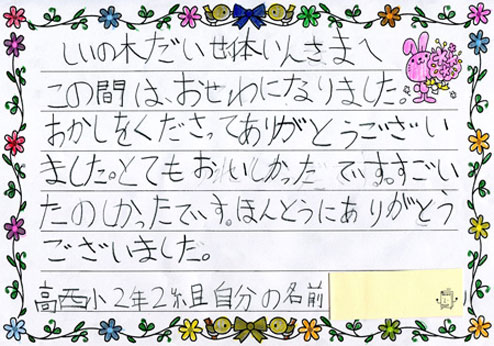 しいの木だい せ体いんさまへ
この間は、おせわになりました。
おかしをくださってありがとうござい
ました。とてもおいしかったでいす。すごい
たのしかったでいす。ほんとうにありがとう
ございました。
高西小2年2組自分の名前